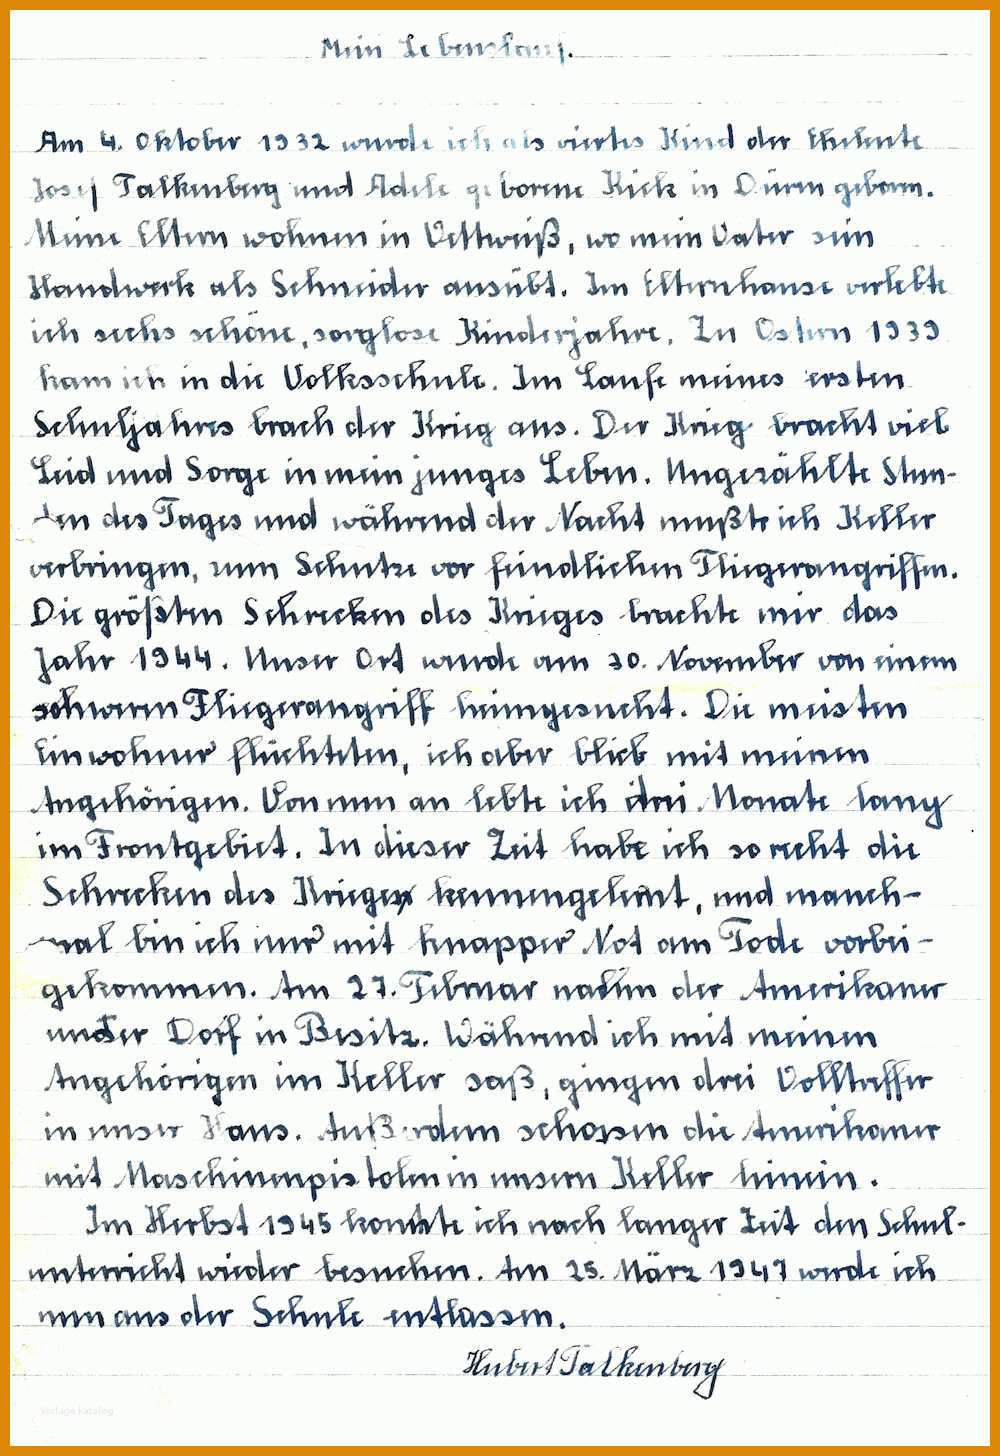 Mein Lebenslauf.
Am 4. Oktober 1932 wurde ich als viertes Kind der Eheleute
Josef Falkenberg und Adele geborene Kick in Düren geboren.
Meine Eltern wohnen in Vettweiß, wo mein Vater sein
Handwerk als Schneider ausübt. Im Elternhause verlebte
ich sechs schöne, sorglose Kinderjahre. Zu Ostern 1939
kam ich in die Volksschule. Im Laufe meines ersten
Schuljahres brach der Krieg aus. Der Krieg bracht viel
Leid und Sorge in mein junges Leben. Ungezählte Stun-
den des Tages und während der Nacht mußte ich Keller
verbringen, zum Schutze vor feindlichen Fliegerangriffen.
Die größten Schrecken des Krieges brachte mir das
Jahr 1944. Unser Ort wurde am 30. November von einem
schweren Fliegerangriff heimgesucht. Die meisten
Einwohner flüchteten, ich aber blieb mit meinen
Angehörigen. Von nun an lebte ich drei Monate lang
im Frontgebiet. In dieser Zeit habe ich so recht die
Schrecken des Krieges kennengelernt, und manch-
mal bin ich nur mit knapper Not am Tode vorbei-
gekommen. Am 27. Februar nahm der Amerikaner
unser Dorf in Besitz. Während ich mit meinen
Angehörigen im Keller saß, gingen drei Volltreffer
in unser Haus. Außerdem schossen die Amerikaner
mit Maschinenpistolen in unsern Keller hinein.
Im Herbst 1945 konnte ich nach langer Zeit den Schul-
unterricht wieder besuchen. Am 25. März 1947 werde ich
nun aus der Schule entlassen.
Hubert Falkenberg
vorlage katalog